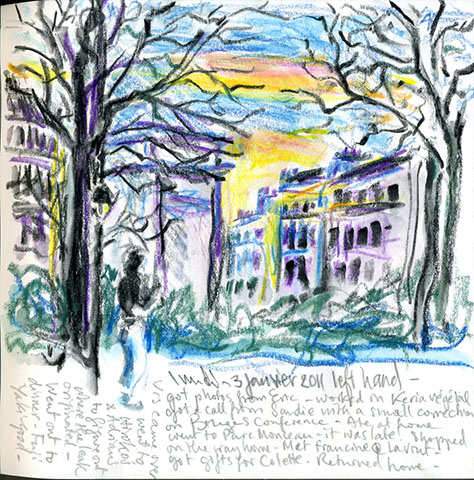 lundi - 3 janvier 2011 left hand -
got photos from Eric - worked on Keria végétal
got a call from Sandie with a small correction
on Bruges Conference - Ate at home
went to Parc Monceau - it was late. Shopped
on the way home - Met Francine @ Lavoir -
got gifts for Colette - Returned home -
V's came over
& went to
to figure out
where the leak
originated -
Went out to
dinner - Fuji
Yaki - good -